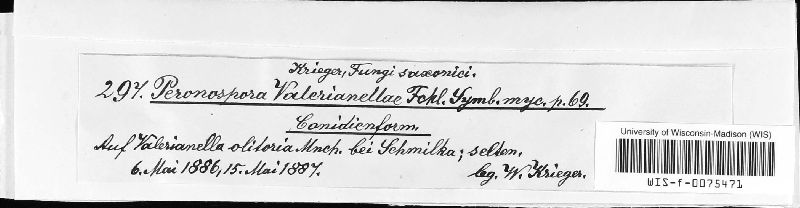 Krieger, Fungi saxonici.
297. Peronospora Valerianellae Fckl. Symb. myc. p. 69.
Conidienform.
Auf Valerianella olitoria Mnch. bei Schmilka; selten.
6. Mai 1886, 15. Mai 1887. leg. W. Krieger.
University of Wisconsin-Madison (WIS)
WIS-f-0075471